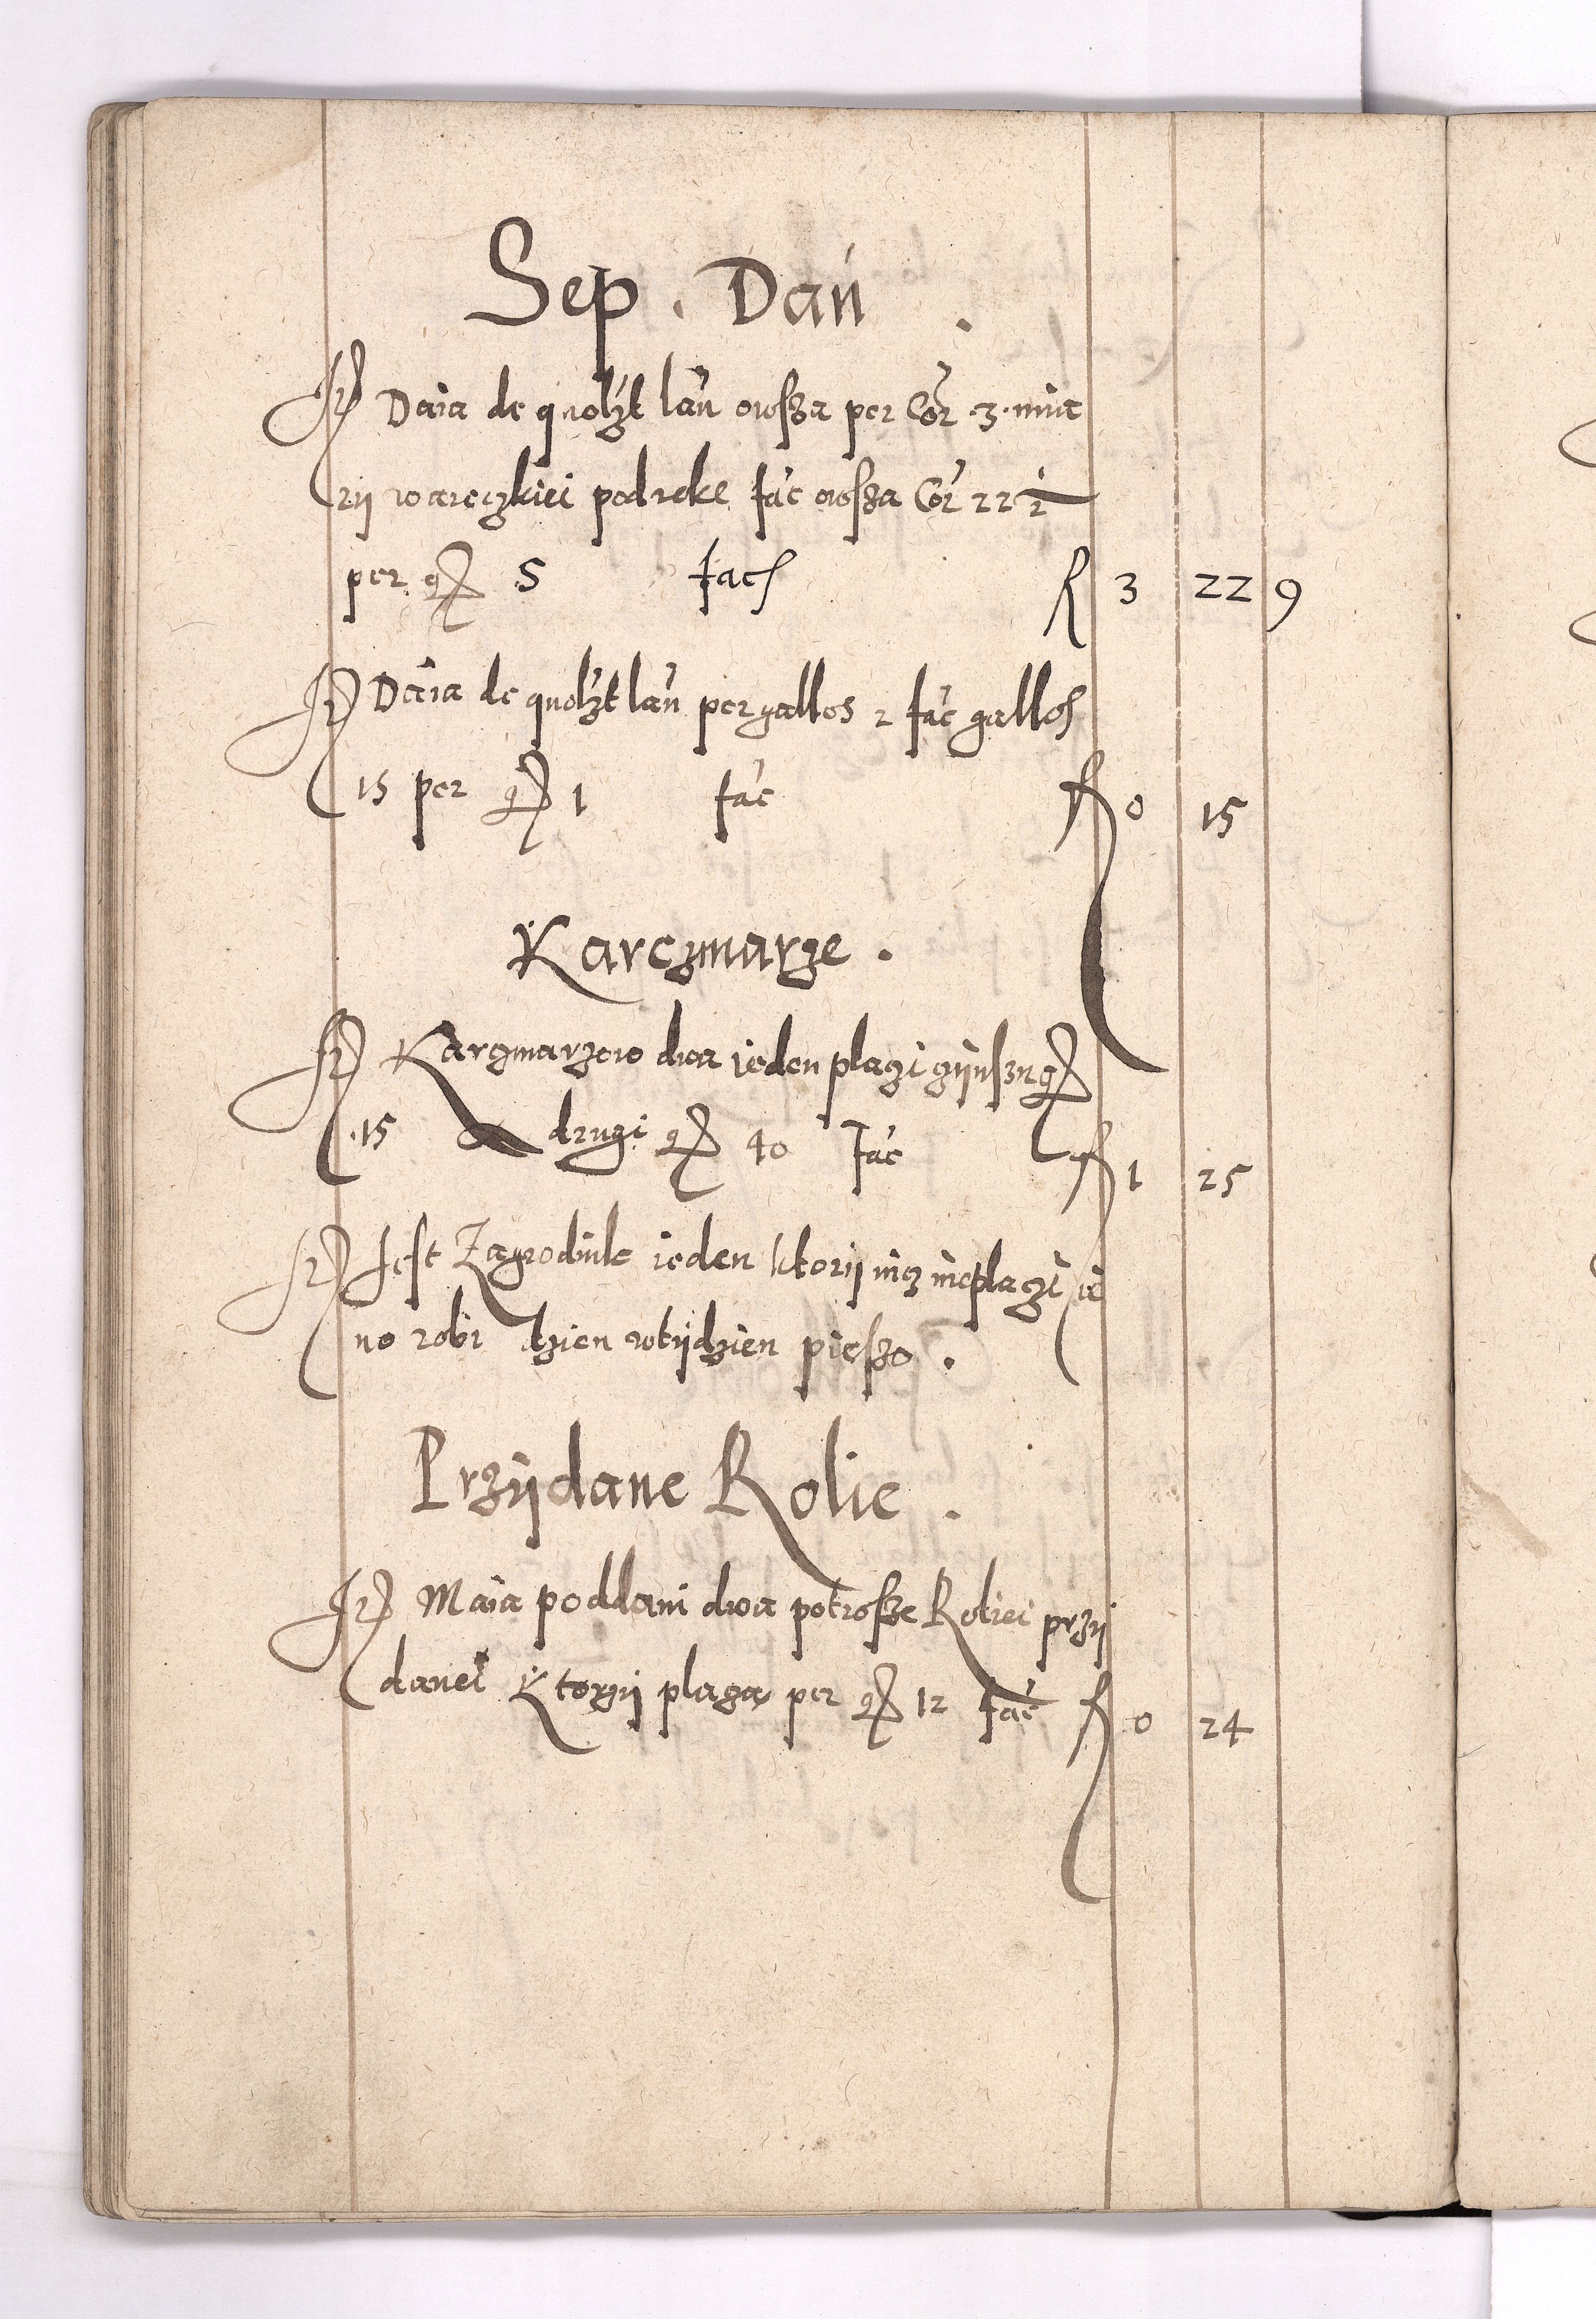 Sep . Dań .
Itē Daia de quolzt lań owsza per Cor 3 · mia
rij wareczkiei pod reke fac̄ owsza Cor 22 ½
per g̃ 5 facſ f 3 22 9
Itē Daia de quolzt lań per gallos 2 fac̄ gallos
15 per g̃ 1 fac̄ f 0 15
Karczmarze .
Itē Karczmarzow dwa ieden placzi czijnszu g̃
15 a drugi g̃ 40 Fac̄ f 1 25
Itē Jest Zagrodnik ieden ktorij nicz nieplaczi ie
no robi dzien wtijdzien pieszo .
Przijdane Rolie .
Itē Maia poddani dwa potrosze Roliei przij
danei Ktorzij placza per g̃ 12 fac̄ f 0 24